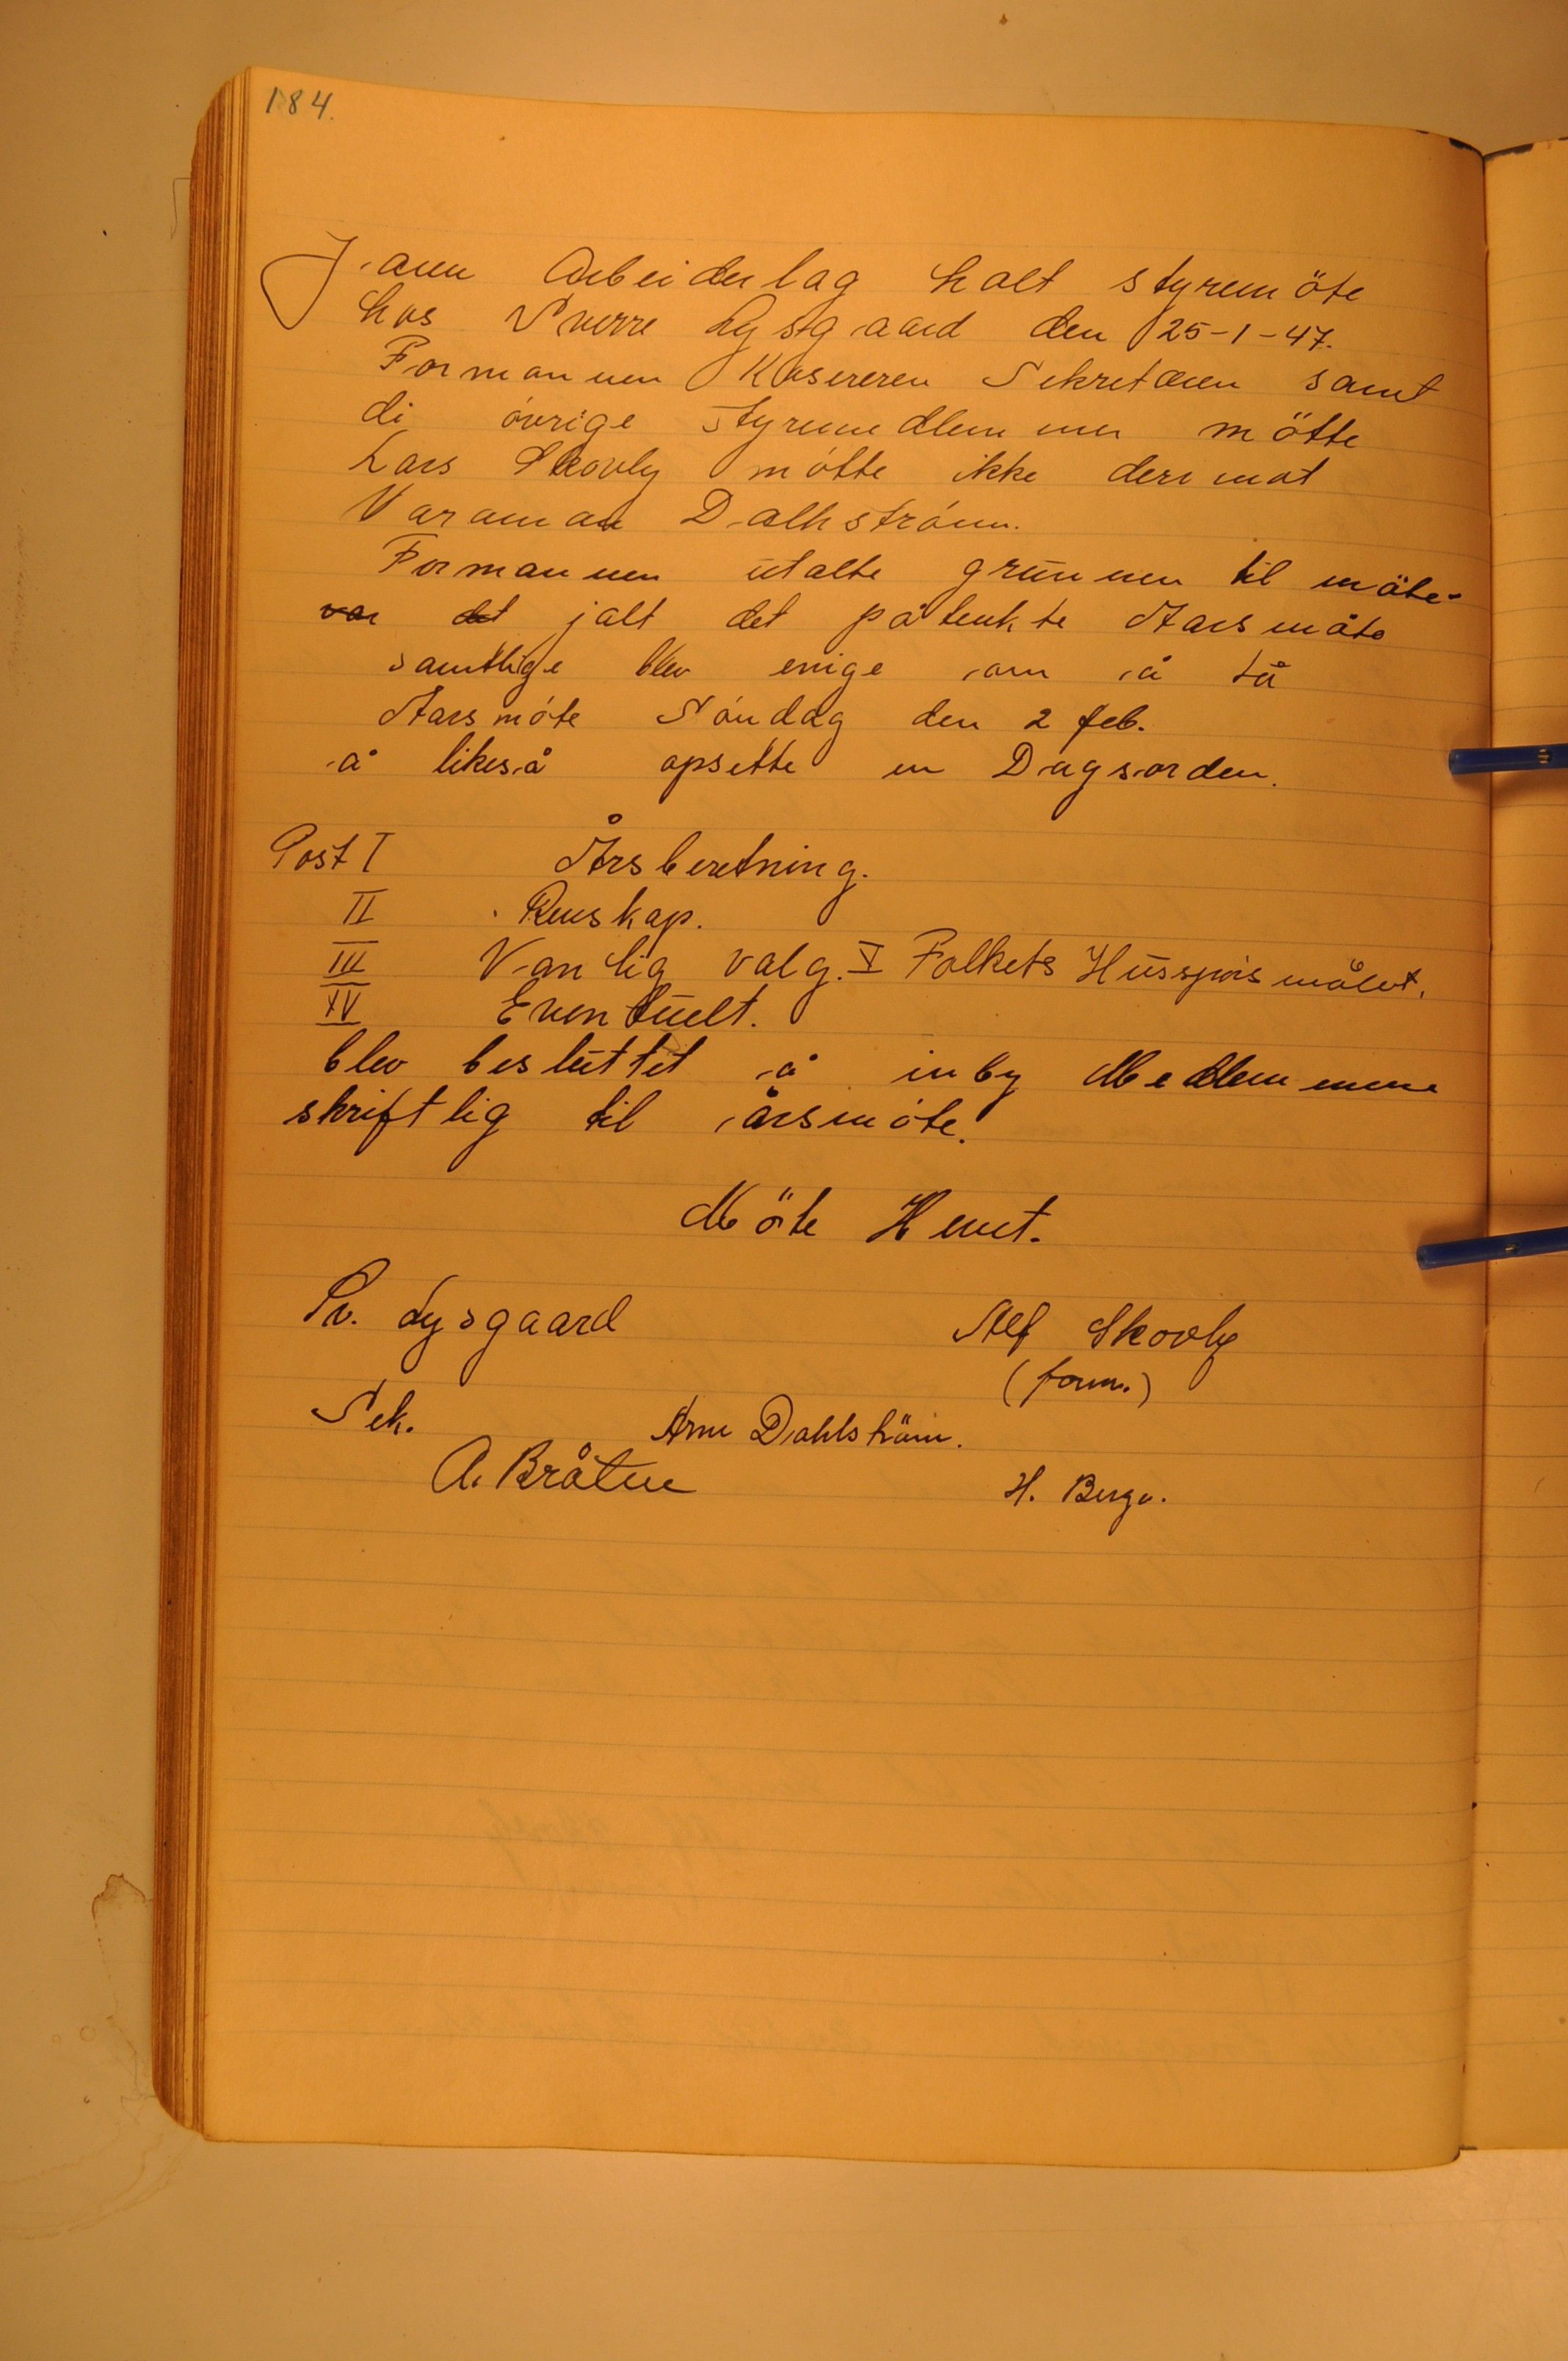 184.
Jaun Arbeiderlag halt styremöte
hos Sverre Lysgaard den 25-1-47.
Formannen Kasereren Sekretæren samt
di óvrige styremedlemmer mötte
Lars Skovly mótte ikke deri mot
Varaman Dalhstróm.
Formannen utalte grunnen til möte
var det jalt det påtenkte Aarsmóte
samtlige blev enige om å få
Aarsmóte Sóndag den 2 feb.
å likeså opsette en Dagsorden.
Post I Årsberetning.
II Renskap.
III Vanlig valg. V Folkets Husspörsmålet.
IV Eventuelt.
blev besluttet å inby Medlemmene
skriftlig til årsmóte.
Möte Hevet.
Sv. Lysgaard Alf Skovly
(form.)
Sek. Arne Dahlström.
A. Bråten H. Berge.